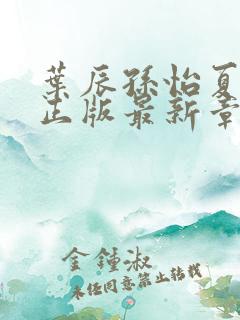 葉辰孫怡夏
正版最新章
金鍾淑
未經同意禁止轉載